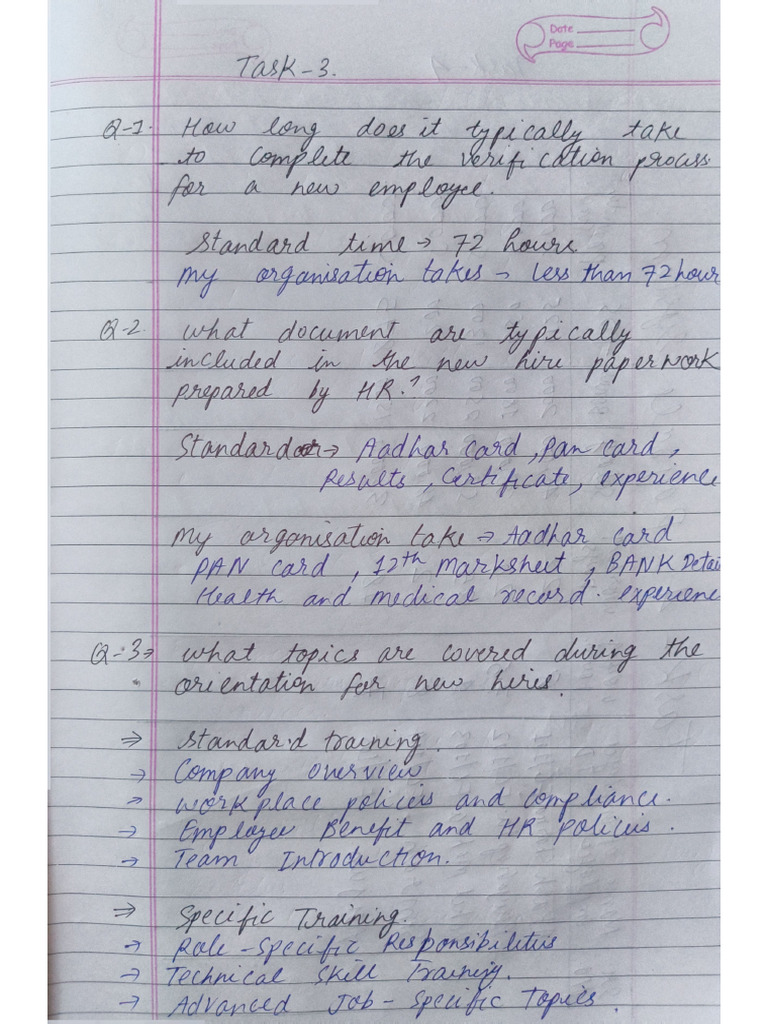 Date
Page
Task-3.
Q-1. How long does it typically take
to complete the verification process
for a new employee.
Standard time → 72 hours
My organisation takes → less than 72 hour
Q-2. what document are typically
included in the new hire paperwork
prepared by HR.?
Standard → Aadhar card, Pan card,
Results, Certificate, experience
My organisation take → Aadhar card
PAN card, 12th marksheet, BANK Detai
Health and medical record. experience
Q-3→ what topics are covered during the
orientation for new hires.
⇒ Standard training.
→ Company overview
→ workplace policies and compliance.
→ Employee Benefit and HR policies.
→ Team Introduction.
⇒ Specific Training.
→ Role-Specific Responsibilities
→ Technical Skill Training.
→ Advanced Job-Specific Topics.